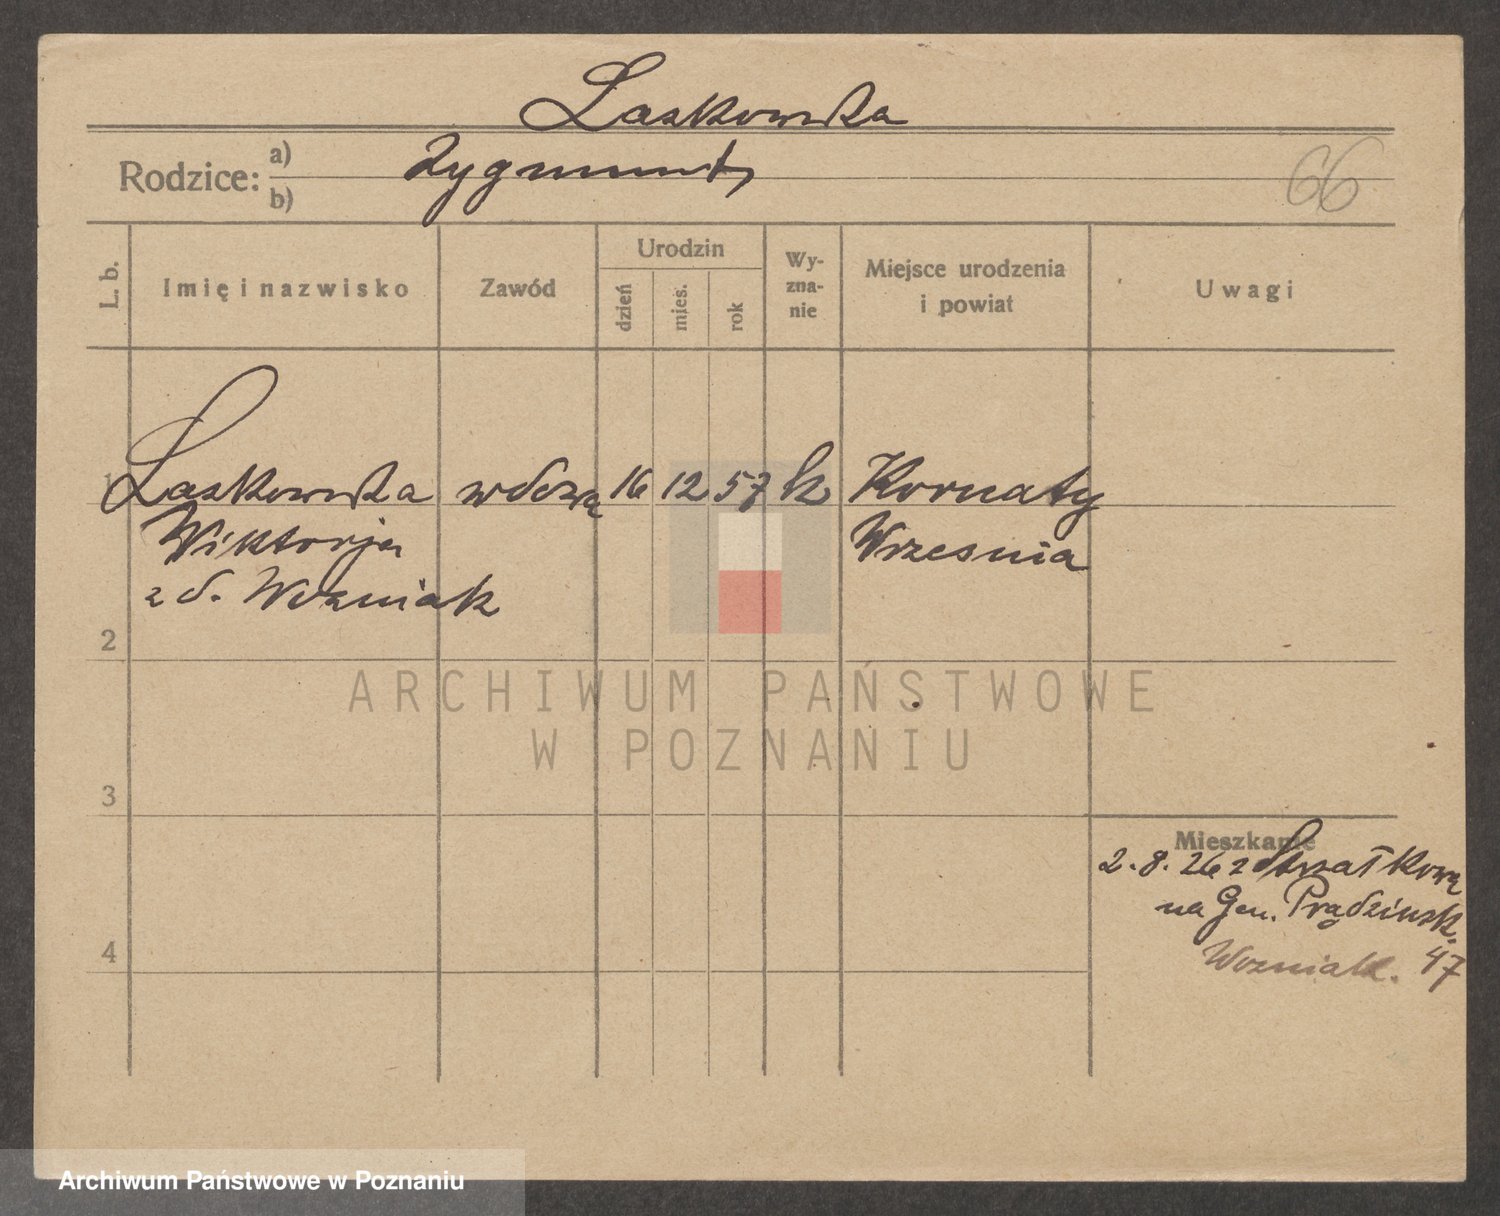 Laskowska
Rodzice: a) Zygmunt,
b)
66
L. b.
Imię i nazwisko
Zawód
Urodzin
dzień
mies.
rok
Wy-
zna-
nie
Miejsce urodzenia
i powiat
Uwagi
1
Laskowska wdowa 16 12 57 k Kornaty
Wiktorja Wrzesnia
z d. Wozniak
2
ARCHIWUM PAŃSTWOWE
W POZNANIU
3
Mieszkanie
2.8.26 z Strzałkowa
na Gen. Prądzińsk.
4
Wozniak. 47
Archiwum Państwowe w Poznaniu